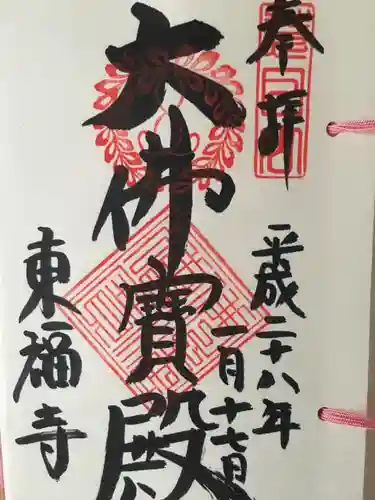 奉拝
平成二十八年
一月十七日
大佛寶殿
東福寺